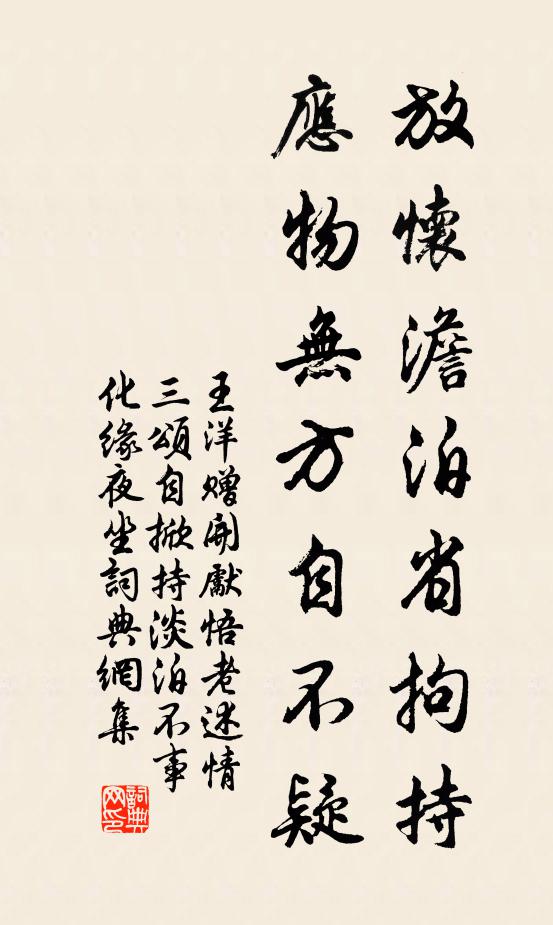 放懷澹泊省拘持
應物無方自不疑
王洋贈開獻悟老述情
三頌自掀持淡泊不事
化緣夜坐詞典網集
詞典网印